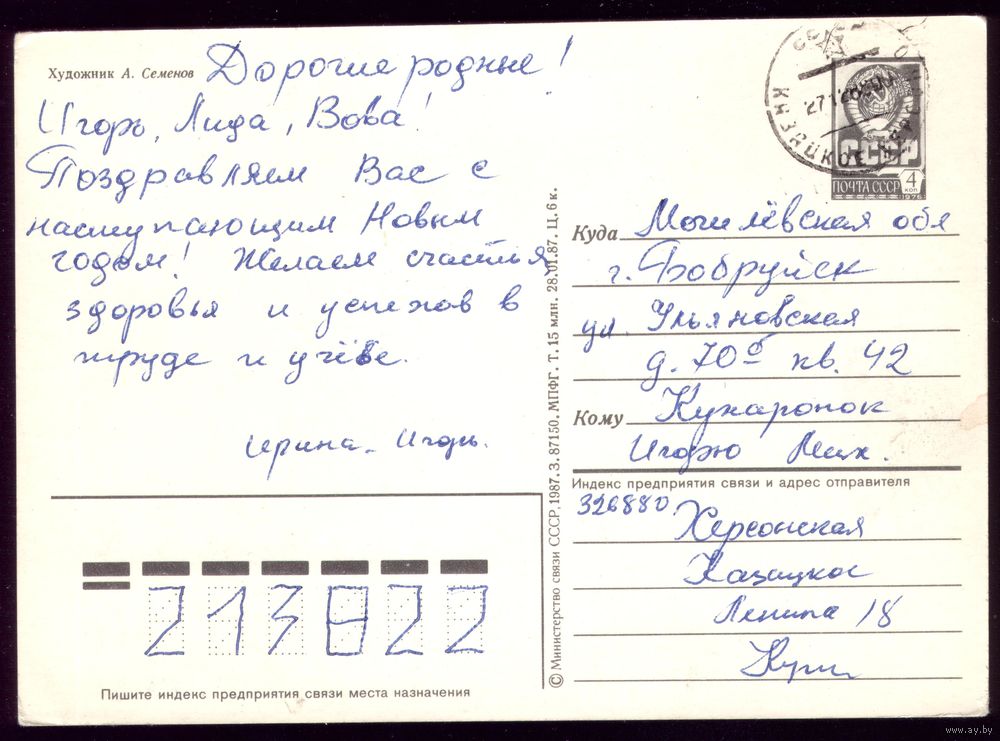 Художник А. Семенов
Дорогие родные!
Игорь, Лида, Вова!
Поздравляем Вас с
наступающим Новым
годом! Желаем счастья
здоровья и успехов в
труде и учёбе.
Ирина. Игорь.
Пишите индекс предприятия связи места назначения
213822
© Министерство связи СССР, 1987. З. 87150. МПФГ. Т. 15 млн. 28.01.87. Ц. 6 к.
СССР
ПОЧТА СССР
4
КОП
1976
Куда Могилёвская обл
г. Бобруйск
ул. Ульяновская
д. 70б кв. 42
Кому Кухаронок
Игорю Мих.
Индекс предприятия связи и адрес отправителя
326880
Херсонская
Казацкое
Ленина 18
www.ay.by